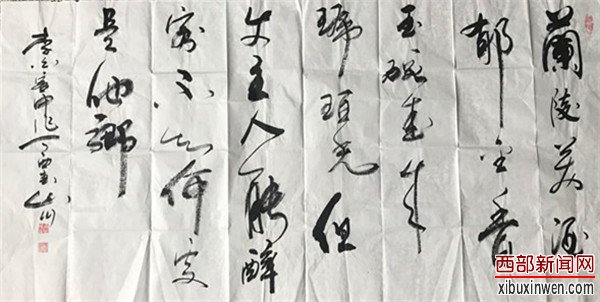 蘭陵美酒
郁金香
玉碗盛来
琥珀光但
使主人能醉
客不知何处
是他鄉
李白客中作丁酉
西部新闻网
xibuxinwen.com